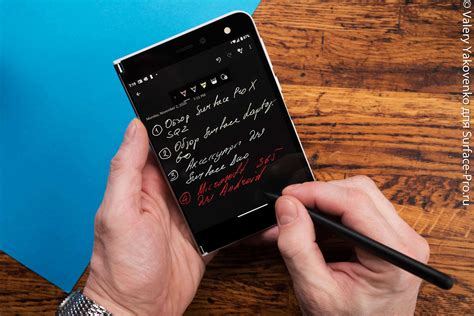 Monday, November 2, 2020
① Обзор Surface Pro X
SQ2
② Обзор Surface Laptop
Go
③ Аксессуары для
Surface Duo
④ Microsoft 365
для Android
© Valery Yakovenko для Surface-Pro.ru